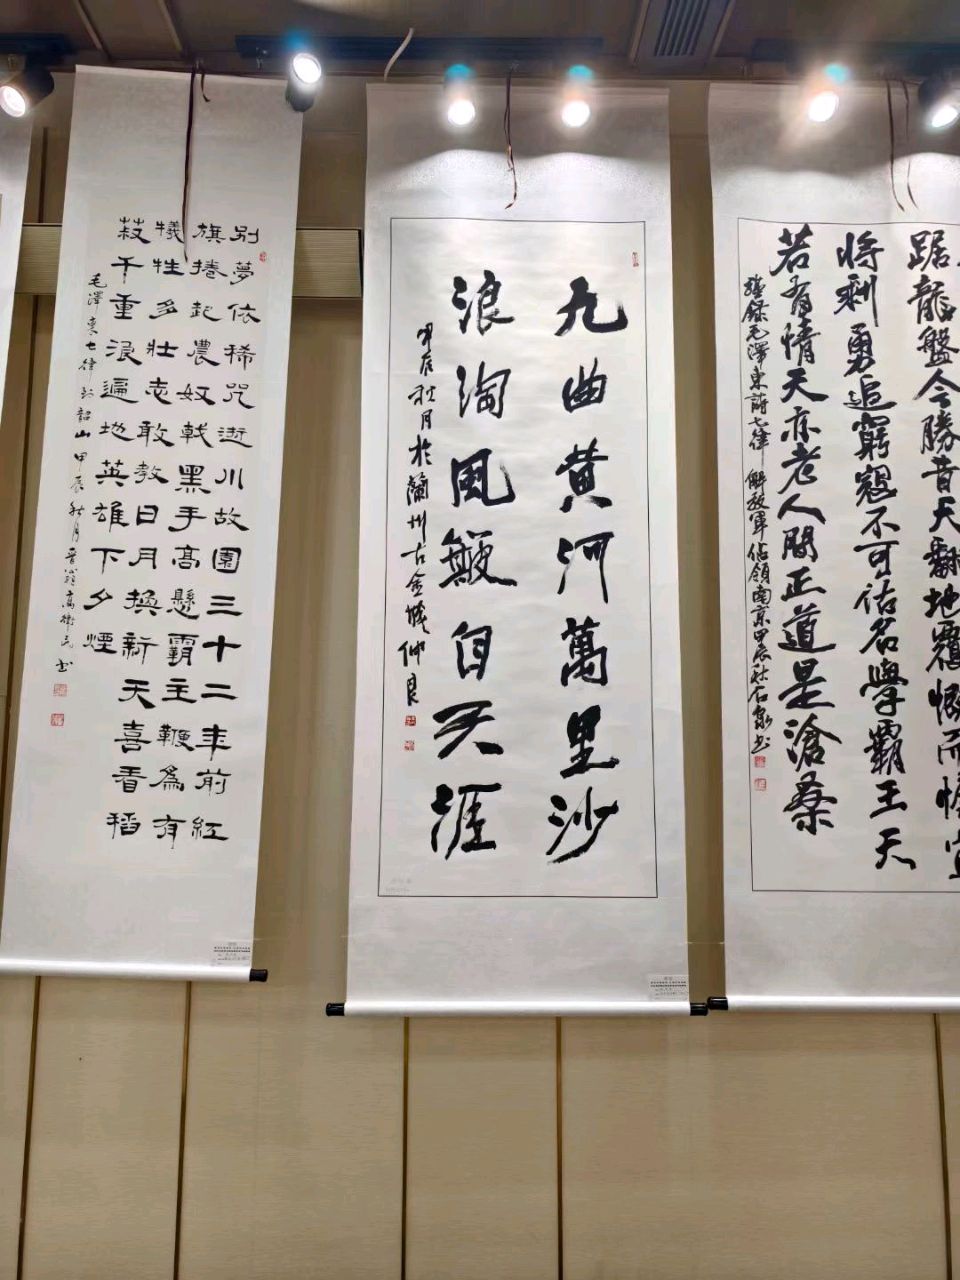 踞龍盤今勝昔天翻地覆慨而慷宜
將剩勇追窮寇不可沽名學霸王天
若有情天亦老人間正道是滄桑
錄毛澤東詩七律解放軍佔領南京甲辰秋石泉書
九曲黃河萬里沙
浪淘風簸自天涯
甲辰秋月於蘭州古金城仲良
別夢依稀咒逝川故園三十二年前紅
旗捲起農奴戟黑手高懸霸主鞭為有
犧牲多壯志敢教日月換新天喜看稻
菽千重浪遍地英雄下夕煙
毛澤東七律到韶山甲辰秋月高衛民書